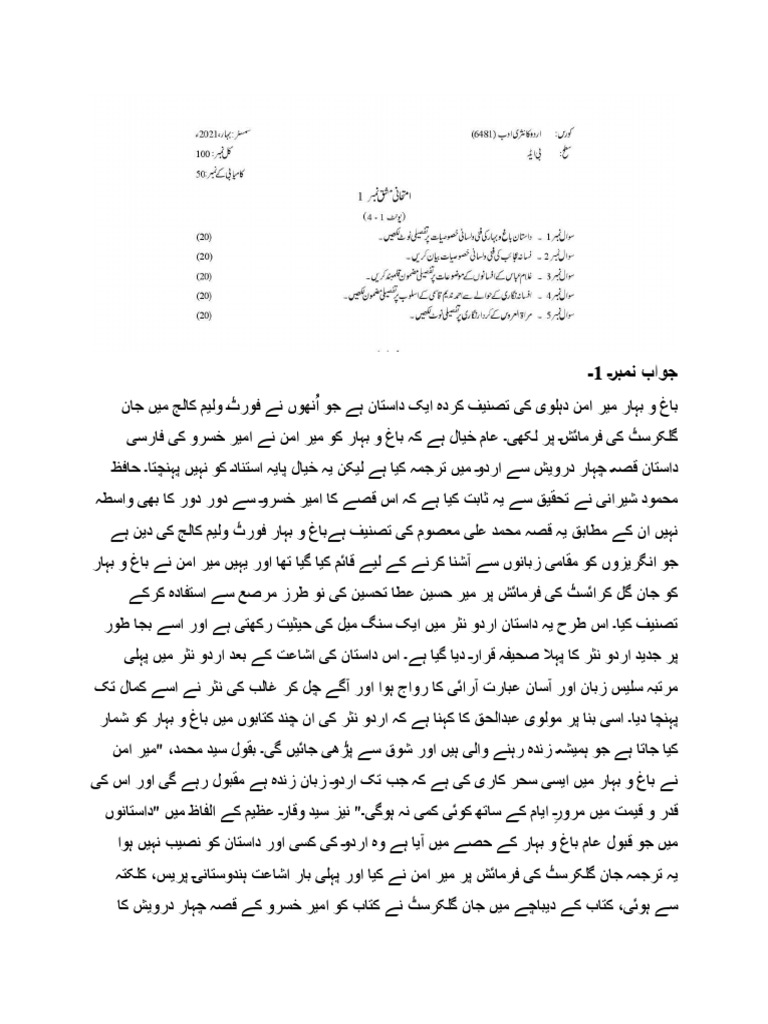 کورس: اردو کا نثری ادب (6481) سمسٹر: بہار، 2021ء
سطح: بی ایڈ کل نمبر: 100
کامیابی کے نمبر: 50
امتحانی مشق نمبر 1
(یونٹ 1 - 4)
سوال نمبر 1 ۔ داستان باغ و بہار کی فنی ولسانی خصوصیات پر تفصیلی نوٹ لکھیں۔ (20)
سوال نمبر 2 ۔ فسانہ عجائب کی فنی ولسانی خصوصیات بیان کریں۔ (20)
سوال نمبر 3 ۔ غلام عباس کے افسانوں کے موضوعات پر تفصیلی مضمون قلمبند کریں۔ (20)
سوال نمبر 4 ۔ افسانہ نگاری کے حوالے سے احمد ندیم قاسمی کے اسلوب پر تفصیلی مضمون لکھیں۔ (20)
سوال نمبر 5 ۔ مراۃ العروس کے کردار نگاری پر تفصیلی نوٹ لکھیں۔ (20)
جواب نمبر۔ 1۔
باغ و بہار میر امن دہلوی کی تصنیف کردہ ایک داستان ہے جو اُنھوں نے فورٹ ولیم کالج میں جان
گلکرسٹ کی فرمائش پر لکھی۔ عام خیال ہے کہ باغ و بہار کو میر امن نے امیر خسرو کی فارسی
داستان قصہ چہار درویش سے اردو میں ترجمہ کیا ہے لیکن یہ خیال پایہ استناد کو نہیں پہنچتا۔ حافظ
محمود شیرانی نے تحقیق سے یہ ثابت کیا ہے کہ اس قصے کا امیر خسرو سے دور دور کا بھی واسطہ
نہیں ان کے مطابق یہ قصہ محمد علی معصوم کی تصنیف ہےباغ و بہار فورٹ ولیم کالج کی دین ہے
جو انگریزوں کو مقامی زبانوں سے آشنا کرنے کے لیے قائم کیا گیا تھا اور یہیں میر امن نے باغ و بہار
کو جان گل کرائسٹ کی فرمائش پر میر حسین عطا تحسین کی نو طرز مرصع سے استفادہ کرکے
تصنیف کیا۔ اس طرح یہ داستان اردو نثر میں ایک سنگ میل کی حیثیت رکھتی ہے اور اسے بجا طور
پر جدید اردو نثر کا پہلا صحیفہ قرار دیا گیا ہے۔ اس داستان کی اشاعت کے بعد اردو نثر میں پہلی
مرتبہ سلیس زبان اور آسان عبارت آرائی کا رواج ہوا اور آگے چل کر غالب کی نثر نے اسے کمال تک
پہنچا دیا۔ اسی بنا پر مولوی عبدالحق کا کہنا ہے کہ اردو نثر کی ان چند کتابوں میں باغ و بہار کو شمار
کیا جاتا ہے جو ہمیشہ زندہ رہنے والی ہیں اور شوق سے پڑھی جائیں گی۔ بقول سید محمد، "میر امن
نے باغ و بہار میں ایسی سحر کاری کی ہے کہ جب تک اردو زبان زندہ ہے مقبول رہے گی اور اس کی
قدر و قیمت میں مرورِ ایام کے ساتھ کوئی کمی نہ ہوگی۔" نیز سید وقار عظیم کے الفاظ میں "داستانوں
میں جو قبول عام باغ و بہار کے حصے میں آیا ہے وہ اردو کی کسی اور داستان کو نصیب نہیں ہوا
یہ ترجمہ جان گلکرسٹ کی فرمائش پر میر امن نے کیا اور پہلی بار اشاعت ہندوستانی پریس، کلکتہ
سے ہوئی، کتاب کے دیباچے میں جان گلکرسٹ نے کتاب کو امیر خسرو کے قصہ چہار درویش کا